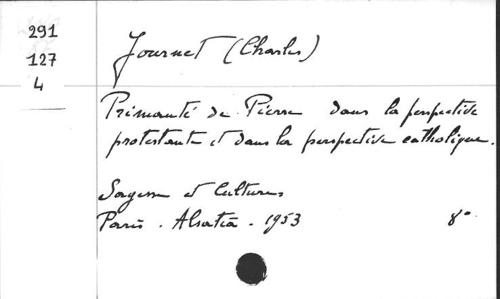 291
127
4
Journet (Charles)
Primauté de Pierre dans la perspective
protestante et dans la perspective catholique.
Sagesse et Cultures
Paris. Alsatia. 1953 8°